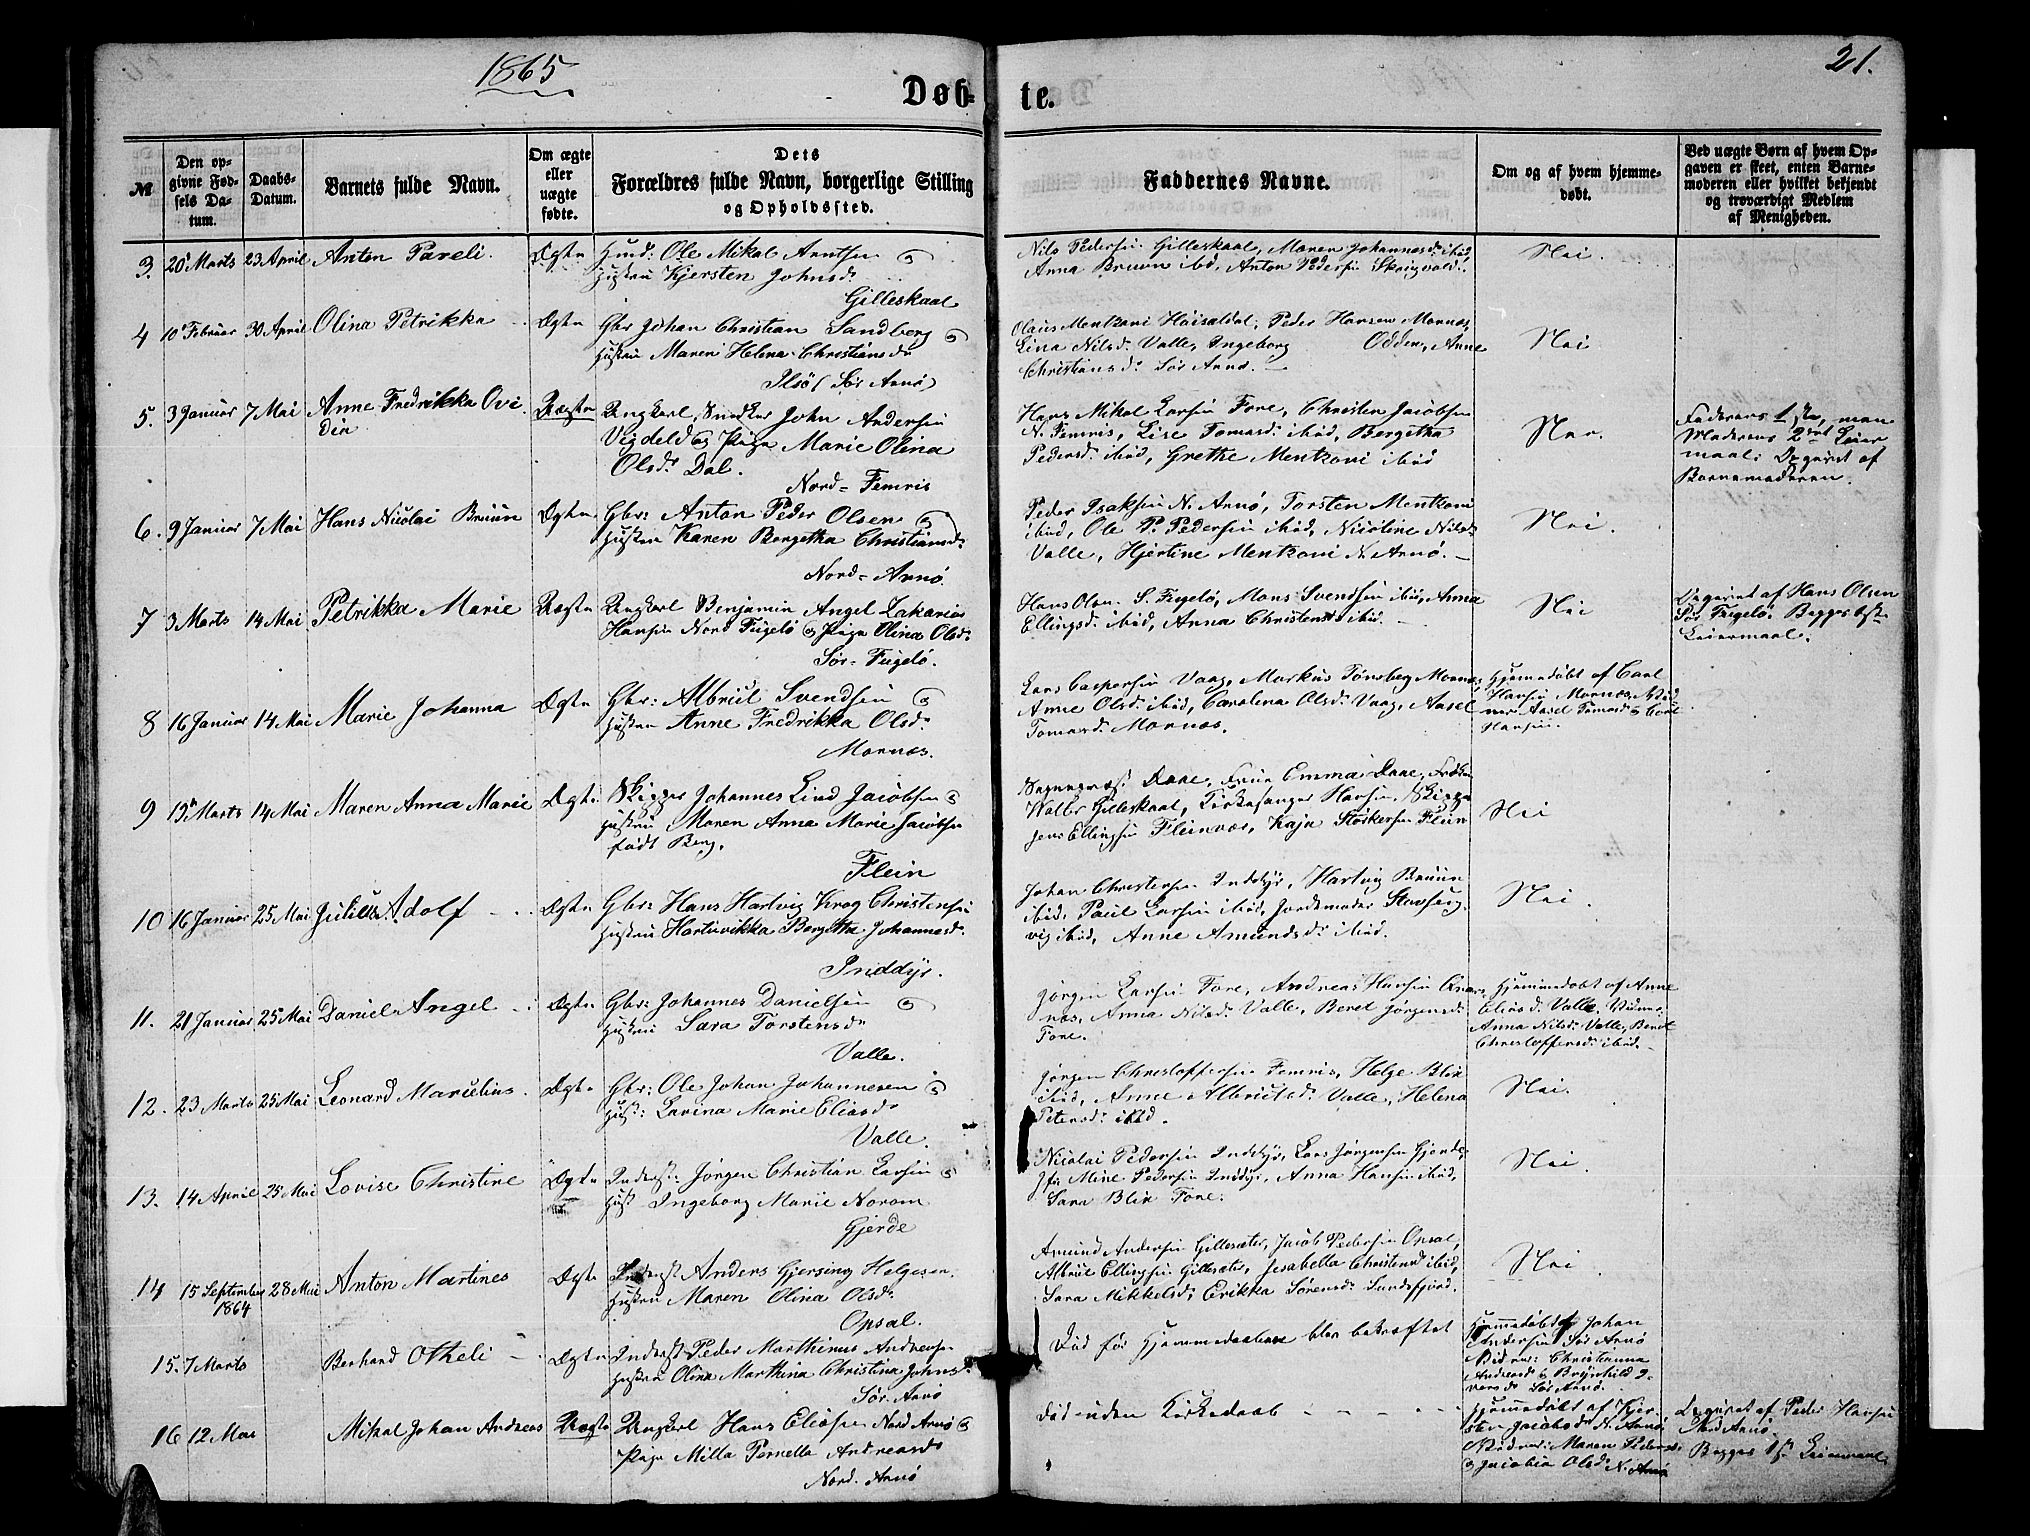 1865
21.
Døb-
te.
№
Den op-
givne Fød-
sels Da-
tum.
Daabs-
Datum.
Barnets fulde Navn.
Om ægte
eller
uægte
fødte.
Dets
Forældres fulde Navn, borgerlige Stilling
og Opholdssted.
Faddernes Navne.
Om og af hvem hjemme-
døbt.
Ved uægte Børn af hvem Op-
gaven er skeet, enten Barne-
moderen eller hvilket bekjendt
og troværdigt Medlem
af Menigheden.
3. 20 Marts 23 April Anton Pareli. Ægte Ole Mikal Arntsen og
Hustru Kjersten Johnsd.
Gilleskaal
Nils Pedersen Gilleskaal, Maren Johannesd. ibid,
Anna Bruun ibid, Anton Pedersen
Nei.
4 10 Februar 30 April Olina Petrikka Ægte Gbr Johan Christian Sandberg og
Hustru Maren Helena Christiansd.
Sør Arnø
Olaus Mentzoni, Peder Hansen Mornæs,
Lina Nilsd. Valle, Ingeborg Odden, Anne
Christiansd. Sør Arnø.
Nei.
5. 3 Januar 7 Mai Anne Fredrikka Ovi
dia
Uægte Ungkarl, Snedker John Andersen
Vigdel og Pige Marie Olina
Olsd. Dal.
Nord-Femris
Hans Mikal Larsen Fore, Christen Jacobsen
N. Femris, Lise Tomasd. ibid, Bergetha
Pedersd. ibid, Grethe Mentzoni ibid
Nei.
Faderens 1ste, men
Moderens 2det Leier
maal. Opgivet af
Barnemoderen.
6. 9 Januar 7 Mai Hans Nicolai Bruun Ægte Gbr: Anton Peder Olsen og
Hustru Karen Bergetha Christiansd.
Nord-Arnø.
Peder Isaksen N. Arnø, Torsten Mentzoni
ibid, Ole P. Pedersen ibid, Nicoline Nilsd.
Valle, Hjertine Mentzoni N. Arnø.
Nei.
7 3 Marts 14 Mai Petrikka Marie Uægte Ungkarl Benjamin Angel Zakarias
Hansen Nord Fugelø og Pige Olina Olsd.
Sør-Fugelø.
Hans Olsen S. Fugelø, Mons Svendsen ibid, Anna
Ellingsd. ibid, Anna Christensd. ibid.
Nei
Opgivet af Hans Olsen
Sør Fugelø. Begges 1ste
Leiermaal.
8 16 Januar 14 Mai Marie Johanna Ægte Gbr: Albrikt Svendsen og
Hustru Anne Fredrikka Olsd.
Mornæs.
Lars Caspersen Vaag, Markus Tønsberg Mornæs,
Anne Olsd. ibid, Carolina Olsd. Vaag, Aasel
Tomasd. Mornæs.
Hjemmedøbt af Carl
Hansen Mornæs, Vid
ner Aasel Tomasd. og Carl
Hansen.
9 19 Marts 14 Mai Maren Anna Marie Ægte Skipper Johannes Lind Jacobsen og
Hustru Maren Anna Marie Jacobsen
født Berg.
Flein
Sognepræst Daae, Frue Emma Daae, Frøken
Gilleskaal, Kirkesanger Hansen, Skipper
Jens Ellingsen Fleinvær, Kaja Størkersen Flein
Nei
10 16 Januar 25 Mai Julius Adolf Ægte Gbr: Hans Hartvig Krog Christensen
Hustru Hartvikka Bergitha Johannesd.
Inddyr.
Johan Christensen Inddyr, Hartvig Bruun
ibid, Paul Larsen ibid, Jordemoder
vig ibid, Anne Amundsd. ibid.
Nei.
11. 21 Januar 25 Mai Daniel Angel Ægte Gbr: Johannes Danielsen og
Hustru Sara Torstensd.
Valle.
Jørgen Larsen Fore, Andreas Hansen
næs, Anna Nilsd. Valle, Beret Jørgensd.
Fore.
Hjemmedøbt af Anne
Eliasd. Valle, Vidner
Anna Nilsd. Valle, Beret
Christoffersd. ibid.
12. 23 Marts 25 Mai Leonard Marcelius. Ægte Gbr: Ole Johan Johannesen og
Hust: Lavina Marie Eliasd.
Valle.
Jørgen Christoffersen Femris, Helge Blix
ibid, Anne Albriktsd. Valle, Helena
Petersd. ibid.
Nei.
13. 14 April 25 Mai Lovise Christine Ægte Inderst: Jørgen Christian Larsen og
Hust Ingeborg Marie Norom
Gjerde
Nicolai Pedersen Inddyr, Lars Jørgensen Gjerde,
Mine Pedersen Inddyr, Anna Hansen ibid,
Sara Blix Fore.
Nei.
14 15 September 28 Mai Anton Martines Ægte Inderst Anders Gjersing Helgesen,
1864
Hustru Maren Olina Olsd.
Opsal.
Amund Andersen Gillesæter, Jacob Pedersen Opsal,
Albrikt Ellingsen Gillesæter, Jesabella Christensd. ibid,
Sara Mikkelsd., Erikka Sørensd. Sundsfjord.
Nei
15. 7 Marts Berhard Otheli Ægte Inderst Peder Marthinus Andreasen
Hustru Olina Marthina Christina Johnsd.
Sør Arnø
Død før Hjemmedaaben blev bekræftet
Hjemmedøbt af Johan
Andersen Sør Arnø
Vidner: Christianna
Andreasd. og Brynhild I-
versd. Sør Arnø.
16 12 Mai Mikal Johan Andreas Uægte Ungkarl Hans Eliasen Nord Arnø og
Pige Milla Pernella Andreasd.
Nord-Arnø
Død uden Kirkedaab
Hjemmedøbt af Kjer-
sten Jacobsd. N. Arnø
Vidner: Maren Pedersd.
og Jacobia Olsd. N. Arnø
Opgivet af Peder Hansen
Nord Arnø.
Begges 1ste Leiermaal.